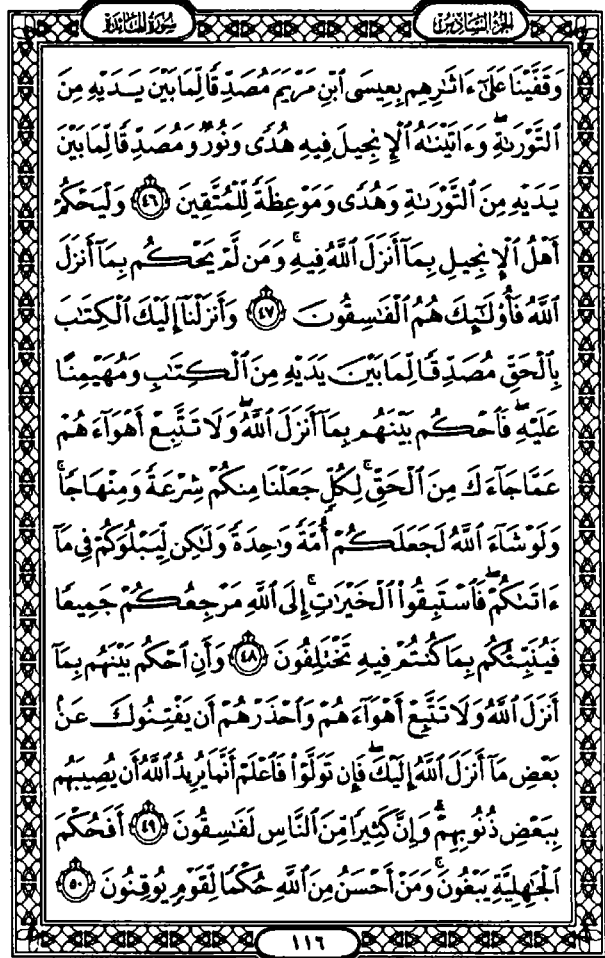 سُورَةُ المَائِدَةِ
الجُزْءُ السَّادِسُ
وَقَفَّيْنَا عَلَىٰٓ ءَاثَـٰرِهِم بِعِيسَى ٱبْنِ مَرْيَمَ مُصَدِّقًا لِّمَا بَيْنَ يَدَيْهِ مِنَ
ٱلتَّوْرَىٰةِ ۖ وَءَاتَيْنَـٰهُ ٱلْإِنجِيلَ فِيهِ هُدًى وَنُورٌ وَمُصَدِّقًا لِّمَا بَيْنَ
يَدَيْهِ مِنَ ٱلتَّوْرَىٰةِ وَهُدًى وَمَوْعِظَةً لِّلْمُتَّقِينَ ٤٦ وَلْيَحْكُمْ
أَهْلُ ٱلْإِنجِيلِ بِمَآ أَنزَلَ ٱللَّهُ فِيهِ ۚ وَمَن لَّمْ يَحْكُم بِمَآ أَنزَلَ
ٱللَّهُ فَأُو۟لَـٰٓئِكَ هُمُ ٱلْفَـٰسِقُونَ ٤٧ وَأَنزَلْنَآ إِلَيْكَ ٱلْكِتَـٰبَ
بِٱلْحَقِّ مُصَدِّقًا لِّمَا بَيْنَ يَدَيْهِ مِنَ ٱلْكِتَـٰبِ وَمُهَيْمِنًا
عَلَيْهِ ۖ فَٱحْكُم بَيْنَهُم بِمَآ أَنزَلَ ٱللَّهُ ۖ وَلَا تَتَّبِعْ أَهْوَآءَهُمْ
عَمَّا جَآءَكَ مِنَ ٱلْحَقِّ ۚ لِكُلٍّ جَعَلْنَا مِنكُمْ شِرْعَةً وَمِنْهَاجًا ۚ
وَلَوْ شَآءَ ٱللَّهُ لَجَعَلَكُمْ أُمَّةً وَٰحِدَةً وَلَـٰكِن لِّيَبْلُوَكُمْ فِى مَآ
ءَاتَىٰكُمْ ۖ فَٱسْتَبِقُوا۟ ٱلْخَيْرَٰتِ ۚ إِلَى ٱللَّهِ مَرْجِعُكُمْ جَمِيعًا
فَيُنَبِّئُكُم بِمَا كُنتُمْ فِيهِ تَخْتَلِفُونَ ٤٨ وَأَنِ ٱحْكُم بَيْنَهُم بِمَآ
أَنزَلَ ٱللَّهُ وَلَا تَتَّبِعْ أَهْوَآءَهُمْ وَٱحْذَرْهُمْ أَن يَفْتِنُوكَ عَنۢ
بَعْضِ مَآ أَنزَلَ ٱللَّهُ إِلَيْكَ ۖ فَإِن تَوَلَّوْا۟ فَٱعْلَمْ أَنَّمَا يُرِيدُ ٱللَّهُ أَن يُصِيبَهُم
بِبَعْضِ ذُنُوبِهِمْ ۗ وَإِنَّ كَثِيرًا مِّنَ ٱلنَّاسِ لَفَـٰسِقُونَ ٤٩ أَفَحُكْمَ
ٱلْجَـٰهِلِيَّةِ يَبْغُونَ ۚ وَمَنْ أَحْسَنُ مِنَ ٱللَّهِ حُكْمًا لِّقَوْمٍ يُوقِنُونَ ٥٠
١١٦